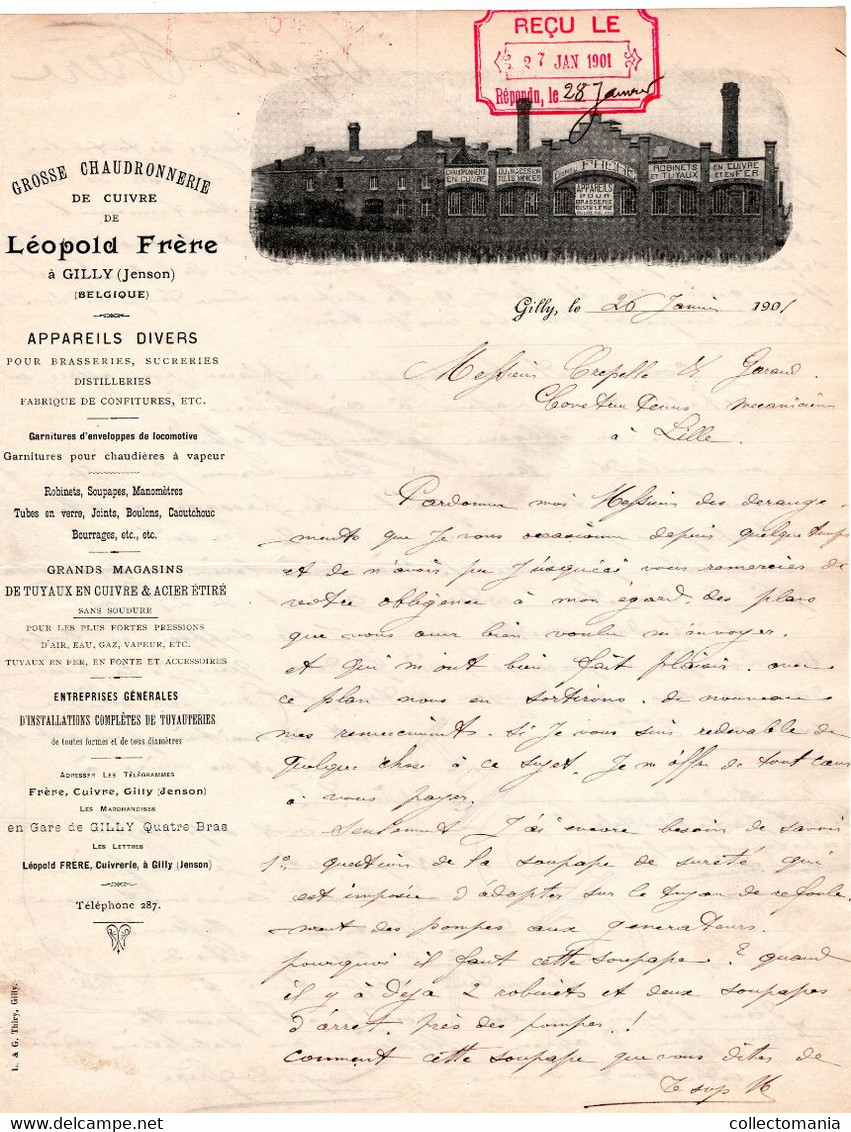 REÇU LE
27 JAN 1901
Répondu, le 28 Janvier
GROSSE CHAUDRONNERIE
DE CUIVRE
DE
Léopold Frère
à GILLY (Jenson)
(BELGIQUE)
APPAREILS DIVERS
POUR BRASSERIES, SUCRERIES
DISTILLERIES
FABRIQUE DE CONFITURES, ETC.
Garnitures d'enveloppes de locomotive
Garnitures pour chaudières à vapeur
Robinets, Soupapes, Manomètres
Tubes en verre, Joints, Boulons, Caoutchouc
Bourrages, etc., etc.
GRANDS MAGASINS
DE TUYAUX EN CUIVRE & ACIER ÉTIRÉ
SANS SOUDURE
POUR LES PLUS FORTES PRESSIONS
D'AIR, EAU, GAZ, VAPEUR, ETC.
TUYAUX EN FER, EN FONTE ET ACCESSOIRES
ENTREPRISES GÉNÉRALES
D'INSTALLATIONS COMPLÈTES DE TUYAUTERIES
de toutes formes et de tous diamètres
ADRESSER LES TÉLÉGRAMMES
Frère, Cuivre, Gilly (Jenson)
LES MARCHANDISES
en Gare de GILLY Quatre Bras
LES LETTRES
Léopold FRÈRE, Cuivrerie, à Gilly (Jenson)
Téléphone 287.
L. & G. Thiry, Gilly.
CHAUDRONNERIE
EN CUIVRE
FRERE
APPAREILS
POUR
BRASSERIE
DISTILLERIE
ROBINETS
ET TUYAUX
EN CUIVRE
ET EN FER
Gilly, le 26 Janvier 1901
Messieurs Crepelle & Garand
mecaniciens
à Lille.
Pardonner moi Messieurs des derange
ments que Je vous occasionne depuis quelque temps
et de n'avoir pu J'usquéci vous remercier de
votre obligence à mon égard. des plans
que vous aver bien voulu m'anvoyer.
et qui m'ont bien fait plaisir. avec
ce plan nous en sortirons. de nouveau
mes remerciments. si Je vous suis redevable de
quelque chose à ce sujet, Je m'offre de tout cœur
à vous payer.
Seulement J'ai encore besoin de savoir
1º question de la soupape de sureté qui
est imposée d'adapter sur le tuyau de refoule
ment des pompes aux generateurs.
pourquoi il faut cette soupape? quand
il y à déja 2 robinets et deux soupapes
d'arret. près des pompes.!
comment cette soupape que vous dites de
collectomania
DELCAMPE.NET